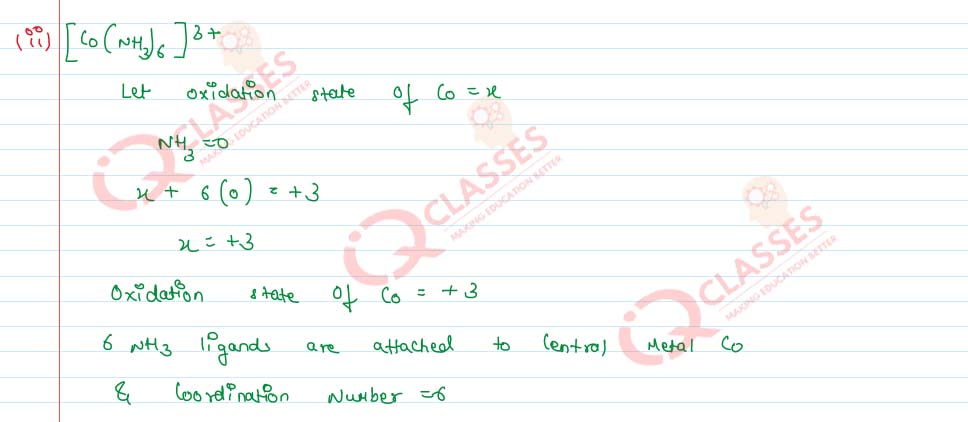 (ii) [Co(NH3)6]3+
Let oxidation state of Co = x
NH3 = 0
x + 6(0) = +3
x = +3
Oxidation state of Co = +3
6 NH3 ligands are attached to Central Metal Co
& Coordination Number = 6
IQ CLASSES
MAKING EDUCATION BETTER
IQ CLASSES
MAKING EDUCATION BETTER
IQ CLASSES
MAKING EDUCATION BETTER